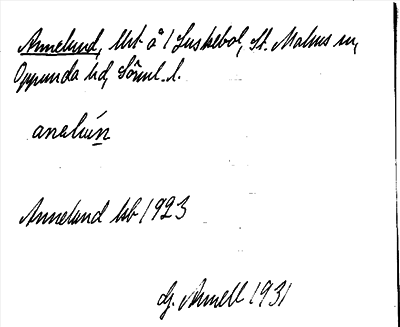 Anneland, lht å 1 Luskebol, St. Malms sn,
Oppunda hd, Söml. l.
anelún
Anneland kb 1923
G. Arnell 1931